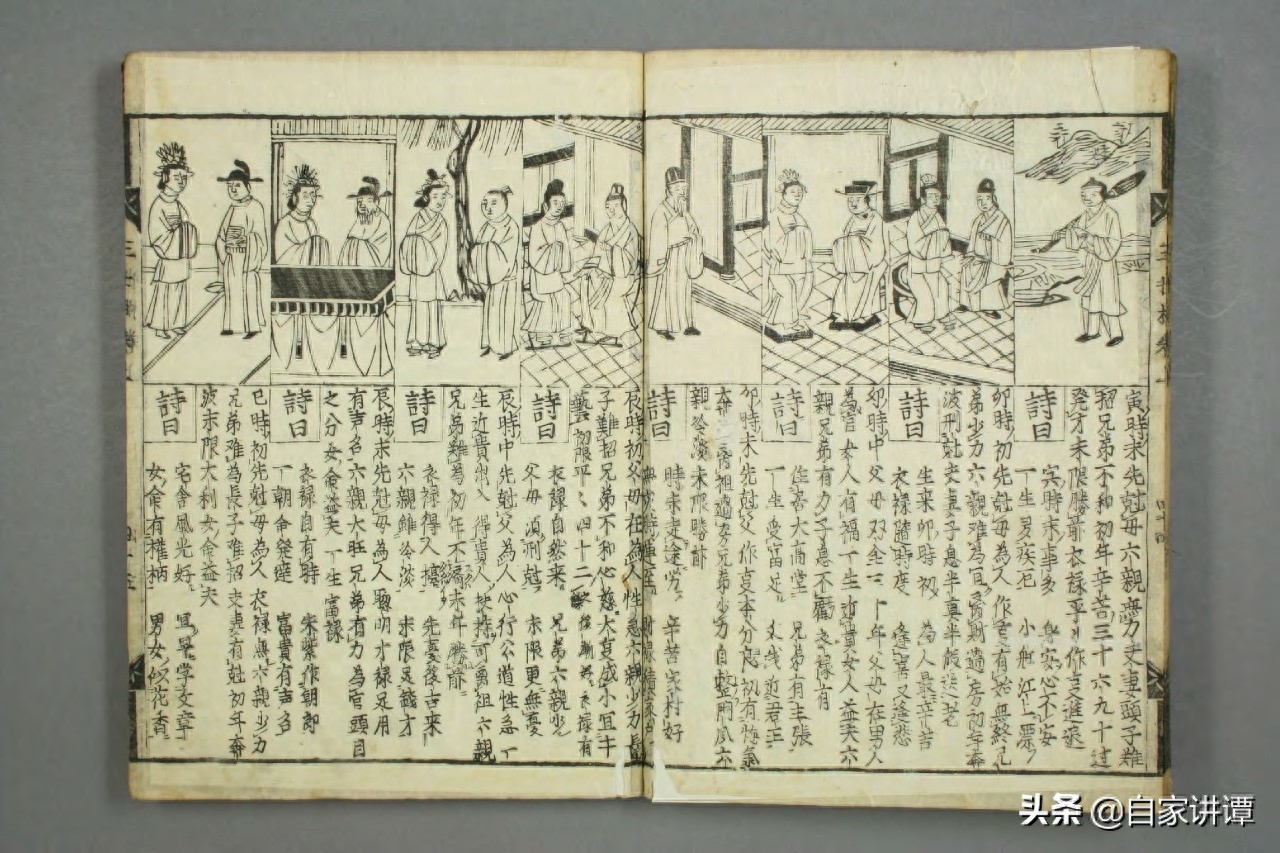 寅時末先尅母六親虛力夫妻頭子難
招兄弟不和初年辛苦三十六九十过
発才末限勝前衣祿平作進退
詩曰
寅時末事多 身安心不安
一生多疾厄 小舡江上票
卯時初先尅母為人作事有始無終兄
弟少力六親难為過房初年奔
波刑尅夫妻子息半真半假
詩曰
生来卯時初 為人最辛苦
衣禄踏時度 逢害又逢悲
卯時中父母双全三十年父母在男人
為官女人有福一生近貴女人益夫六
親兄弟有力子息不孤衣禄有
詩曰
住害大高堂 兄弟有主張
一生受富足 近君王
卯時末先尅父作事本分忠初有悔氣
祖過房兄弟少力自整門風六
親冷淡末限勝前
詩曰
時末走途労 辛苦宋村好
辰時初父母在為人性急六親少力
子難招兄弟不和心慈大事成小宜牛
初限平 四十二 衣禄有
詩曰
衣祿自然来 兄弟六親少
父母須刑尅 末限更無憂
辰時中先尅父為人心行公道性急一
生近貴出入得貴人扶持可離祖六親
兄弟難為初年不濟末年勝前
詩曰
衣禄得人擡 先憂後吉来
六親雖冷淡 末限足錢才
辰時末先尅母為人聡明才禄足用
有声名六親大旺兄弟有力為官頭目
之分女命益夫一生富禄
詩曰
衣禄自有時 宋紫作朝郎
一朝命発達 富貴有声名
巳時初先尅母為人衣禄無六親少力
兄弟雖為長子难招夫妻有尅初年奔
波末限大利女命益夫
詩曰
宅舎風光好 学文章
女命有權柄 男女似花香
头条 @自家讲谭